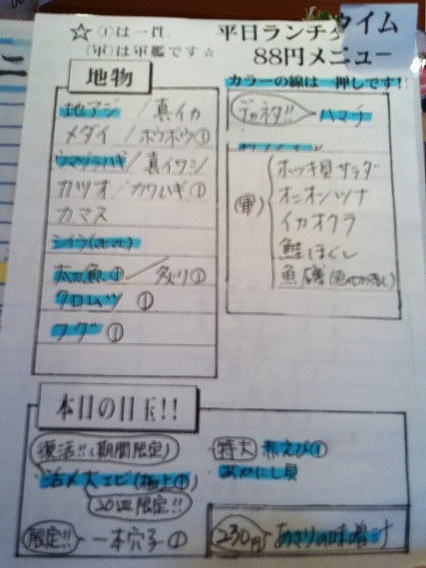 ☆①は一貫
(軍)は軍艦です☆
平日ランチタイム
88円メニュー
カラーの線は一押しです!
地物
地アジ / 真イカ
メダイ / ホウボウ①
ウマヅラハギ / 真イワシ
カツオ / カワハギ①
カマス
シイラ
太刀魚① / 炙り①
クロムツ ①
フグ ①
デカネタ!! ハマチ
(軍)
ホッキ貝サラダ
オニオンツナ
イカオクラ
鮭ほぐし
魚磯
本日の目玉!!
復活!!(期間限定)
活〆大エビ(極上①)
20皿限定!!
限定!! 一本穴子①
特大 赤えび①
あかにし貝
230円 あさりの味噌汁